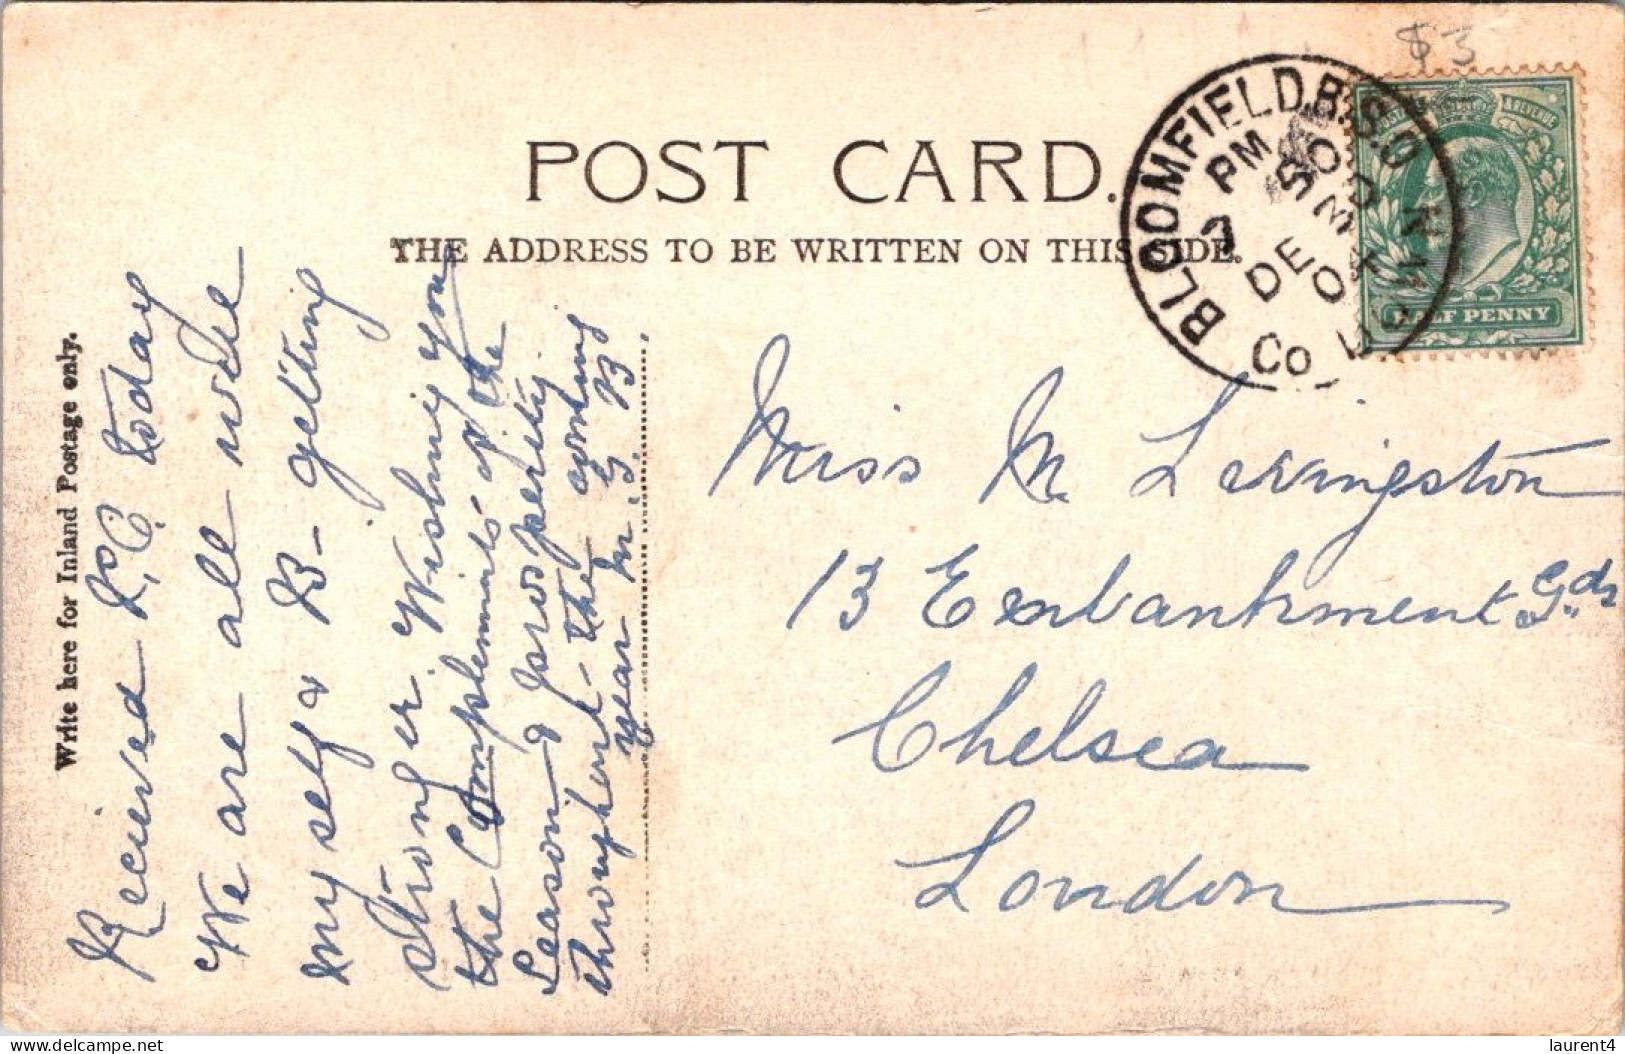 $3
POST CARD.
THE ADDRESS TO BE WRITTEN ON THIS SIDE.
BLOOMFIELD.B.S.O
PM
DE
Co
HALF PENNY
Write here for Inland Postage only.
Received P.C. today
We are all well
myself & B- getting
stronger. Wishing you
the Compliments of the
Season & prosperity
throughout the coming
year M. G. B
Miss M. Livingston
13 Embankment Gds
Chelsea
London
delcampe.net
laurent4